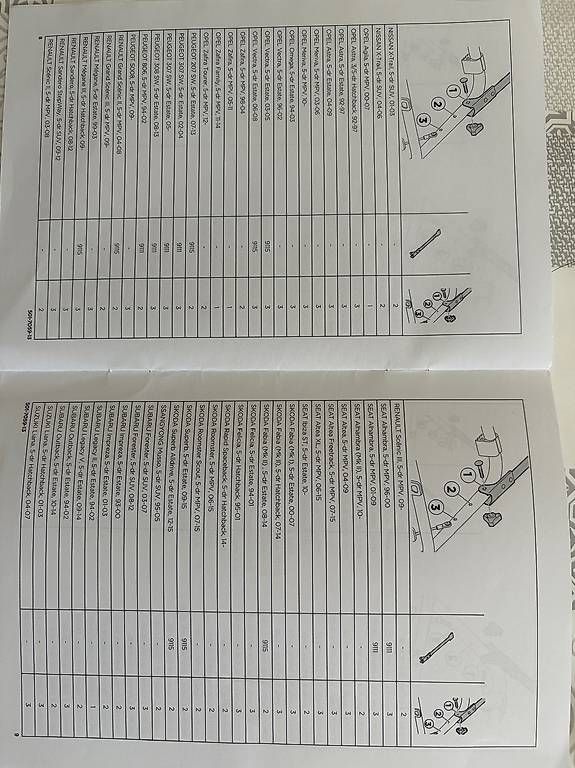 1
2
3
1
2
3
NISSAN X-Trail, 5-dr SUV, 01-03 - 2
NISSAN X-Trail, 5-dr SUV, 04-06 - 2
OPEL Agila, 5-dr MPV, 00-07 - 1
OPEL Astra, 3/5-dr Hatchback, 92-97 - 3
OPEL Astra, 5-dr Estate, 92-97 - 3
OPEL Astra, 5-dr Estate, 04-09 - 3
OPEL Meriva, 5-dr MPV, 03-06 - 3
OPEL Meriva, 5-dr MPV, 10- - 3
OPEL Omega, 5-dr Estate, 94-03 - 3
OPEL Vectra, 5-dr Estate, 96-02 - 3
OPEL Vectra, 5-dr Estate, 03-05 9115 3
OPEL Vectra, 5-dr Estate, 05-08 9115 3
OPEL Zafira, 5-dr MPV, 98-04 - 2
OPEL Zafira, 5-dr MPV, 05-11 - 1
OPEL Zafira Family, 5-dr MPV, 11-14 - 1
OPEL Zafira Tourer, 5-dr MPV, 12- - 2
PEUGEOT 207 SW, 5-dr Estate, 07-13 9115 2
PEUGEOT 307 SW, 5-dr Estate, 02-04 9111 3
PEUGEOT 307 SW, 5-dr Estate, 05- 9111 3
PEUGEOT 308 SW, 5-dr Estate, 08-13 9111 3
PEUGEOT 806, 5-dr MPV, 94-02 9111 2
PEUGEOT 5008, 5-dr MPV, 09- - 3
RENAULT Grand Scénic II, 5-dr MPV, 04-08 9115 2
RENAULT Grand Scénic III, 5-dr MPV, 09- - 2
RENAULT Mégane, 5-dr Estate, 99-03 - 3
RENAULT Mégane III, 5-dr Hatchback, 09- 9115 3
RENAULT Sandero, 5-dr Hatchback, 08-12 - 3
RENAULT Sandero StepWay, 5-dr SUV, 09-12 - 3
RENAULT Scénic II, 5-dr MPV, 03-08 - 2
8
501-7059-13
1
2
3
1
2
3
RENAULT Scénic III, 5-dr MPV, 09- - 2
SEAT Alhambra, 5-dr MPV, 96-00 9111 3
SEAT Alhambra, 5-dr MPV, 01-09 9111 3
SEAT Alhambra (Mk II), 5-dr MPV, 10- - 2
SEAT Altea, 5-dr MPV, 04-09 - 3
SEAT Altea Freetrack, 5-dr MPV, 07-15 - 3
SEAT Altea XL, 5-dr MPV, 06-15 - 3
SEAT Ibiza ST, 5-dr Estate, 10- - 2
SKODA Fabia (Mk I), 5-dr Estate, 00-07 - 3
SKODA Fabia (Mk II), 5-dr Hatchback, 07-14 - 3
SKODA Fabia (Mk II), 5-dr Estate, 08-14 9115 2
SKODA Felicia, 5-dr Estate, 94-01 - 3
SKODA Felicia, 5-dr Hatchback, 95-01 - 3
SKODA Rapid Spaceback, 5-dr Hatchback, 14- - 2
SKODA Roomster, 5-dr MPV, 06-15 - 2
SKODA Roomster Scout, 5-dr MPV, 07-15 - 2
SKODA Superb, 5-dr Estate, 09-15 9115 2
SKODA Superb 5-dr Estate, 12-15 9115 2
SSANGYONG Musso, 5-dr SUV, 95-05 - 3
SUBARU Forester, 5-dr SUV, 03-07 - 3
SUBARU Forester, 5-dr SUV, 08-12 - 3
SUBARU Impreza, 5-dr Estate, 93-00 - 2
SUBARU Impreza, 5-dr Estate, 01-03 - 2
SUBARU Legacy II, 5-dr Estate, 94-02 - 1
SUBARU Legacy V, 5-dr Estate, 09-14 - 2
SUBARU Outback, 5-dr Estate, 94-02 - 3
SUBARU Outback, 5-dr Estate, 10-14 - 2
SUZUKI Liana, 5-dr Hatchback, 01-03 - 3
SUZUKI Liana, 5-dr Hatchback, 04-07 - 3
501-7059-13
9